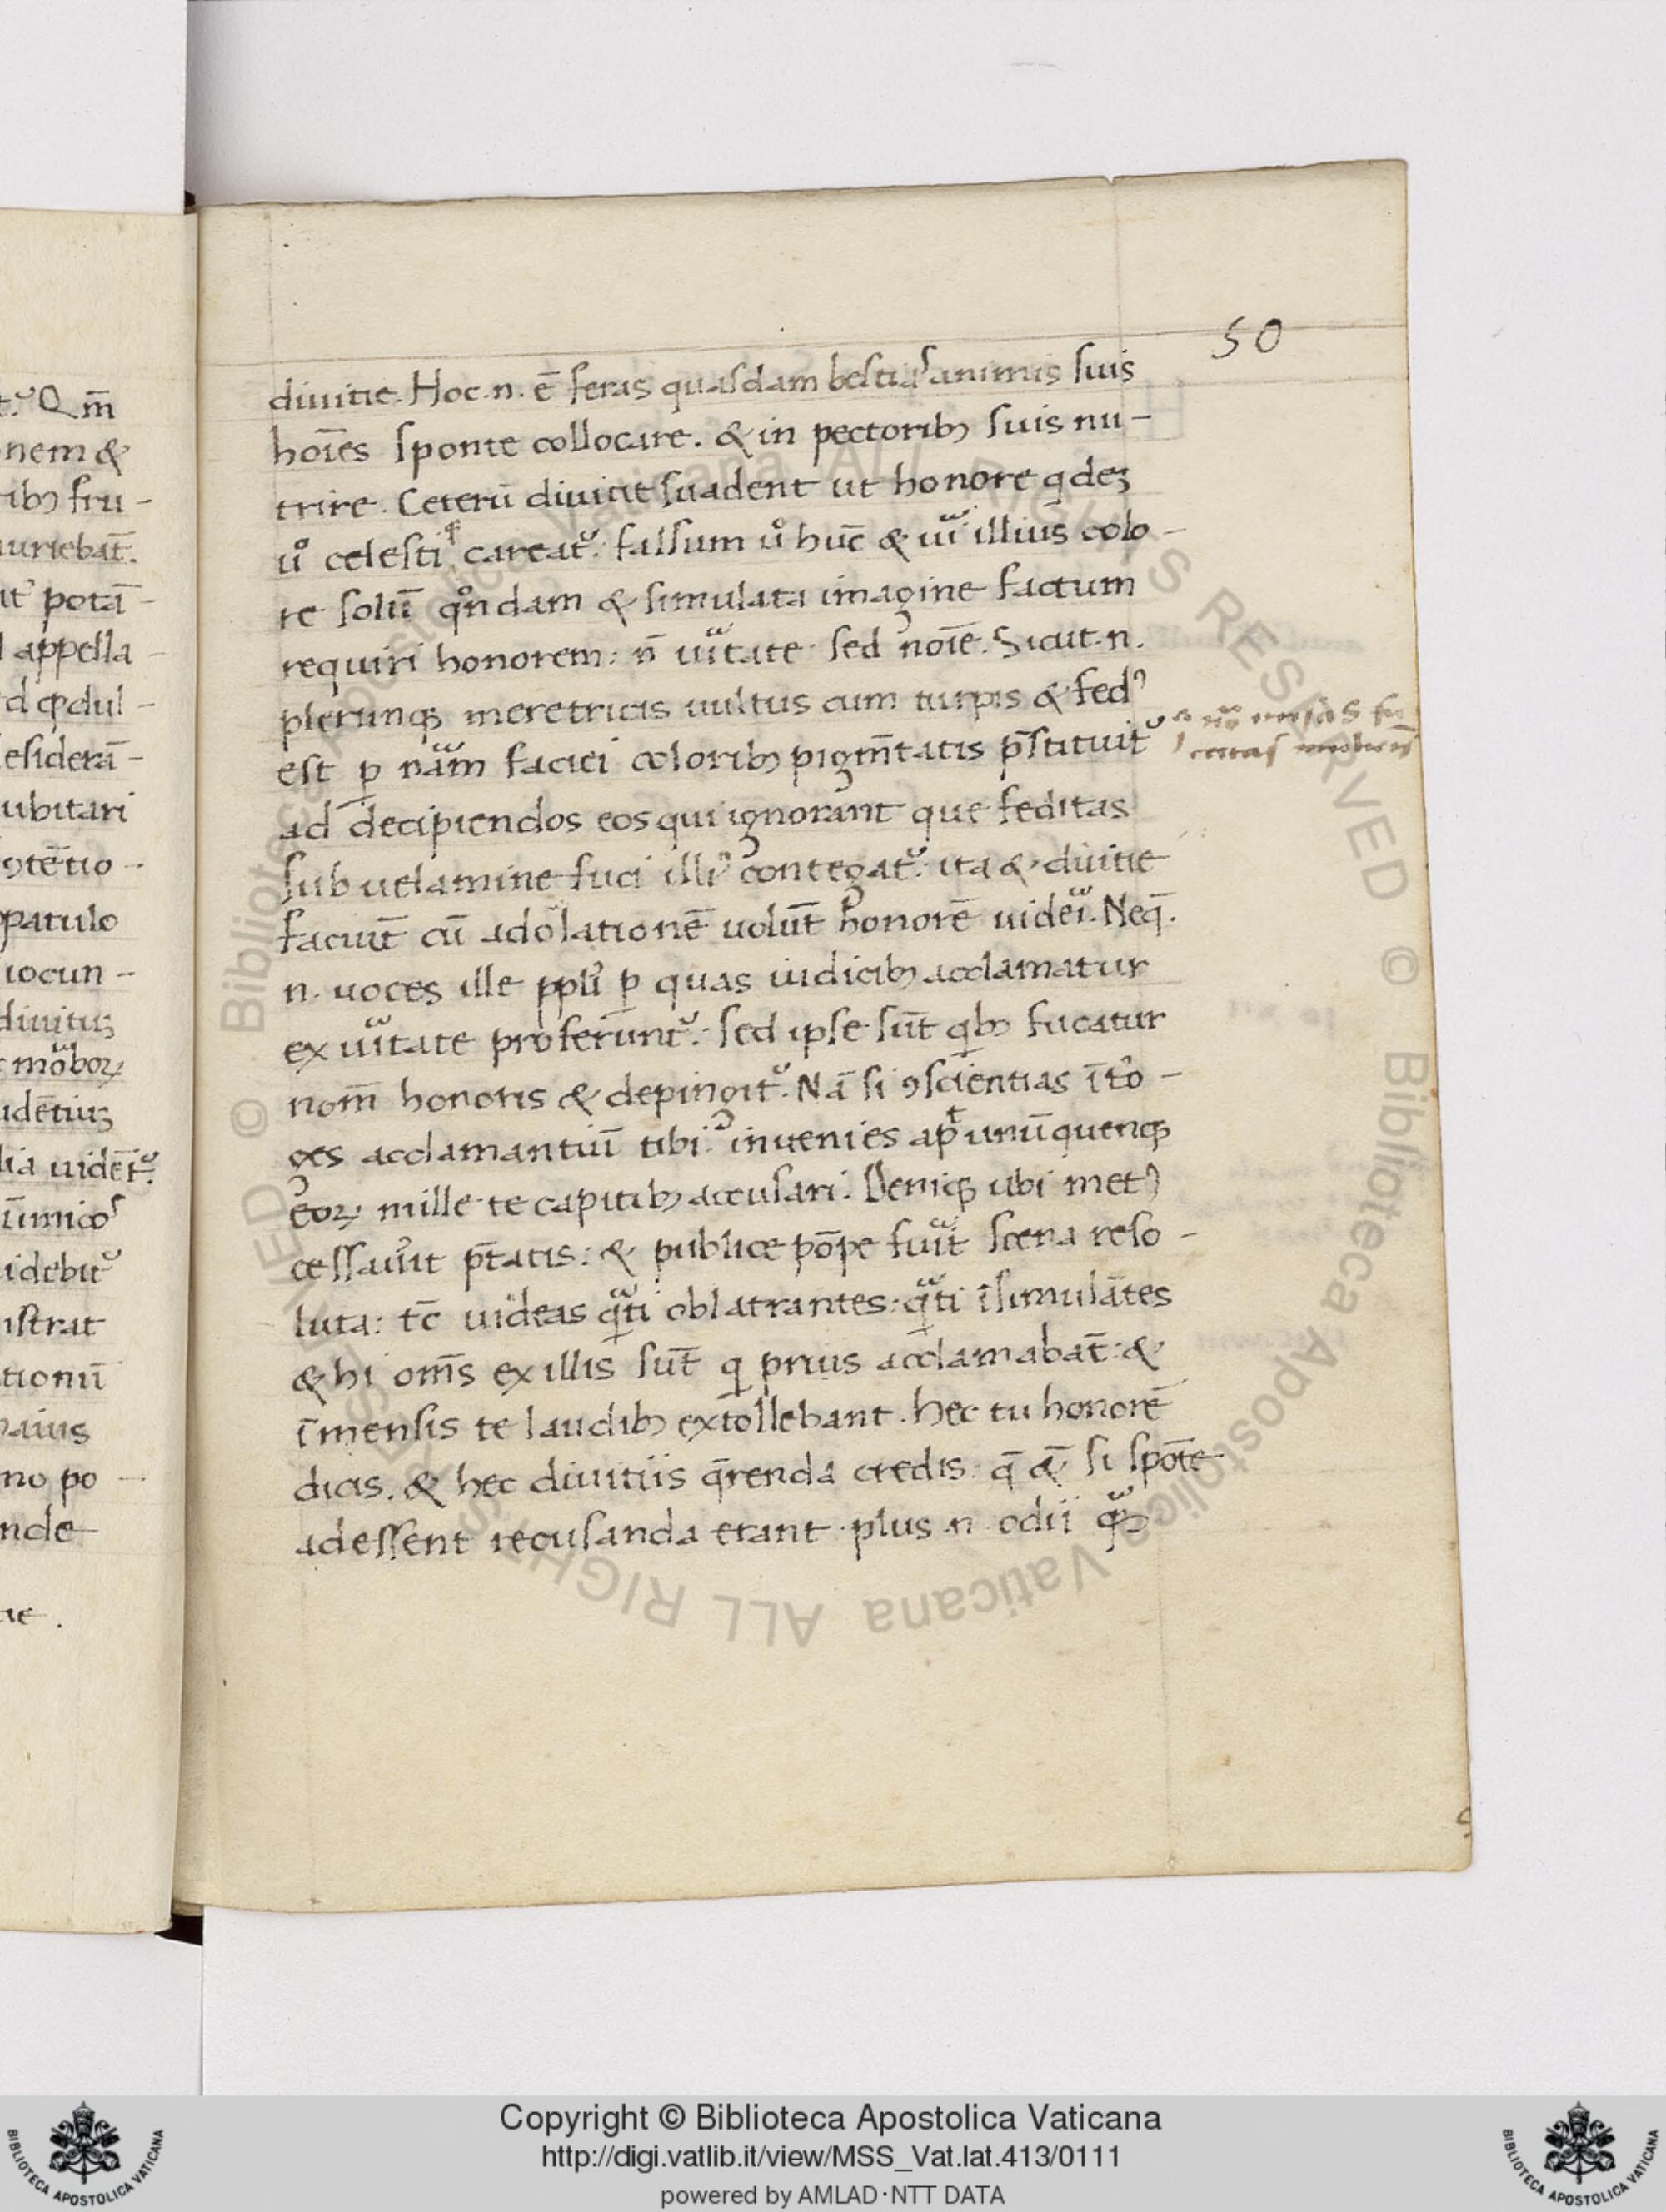 50
diuitie. Hoc .n. ē feras quasdam bestias animis suis
hoīes sponte collocare. & in pectoribꝫ suis nu-
trire. Ceterū diuitie suadent ut honore qdeꝫ
uͦ celesti careat᷑. falsum uͦ hūc & illius colo-
re solū qͦndam & simulata imagine factum
requiri honorem: n̄ uïtate sed noīe. Sicut .n.
plerunqꝫ meretricis uultus cum turpis & fedꝰ
est ꝑ nām faciei coloribꝫ pigm̄tatis ꝓstituit᷑
ad decipiendos eos qui ignorant que feditas
sub uelamine fuci illiꝰ contegat᷑. ita & diuitie
faciūt cū adolationē uolūt honorē uideri. Neq̄.
n. uoces ille ppli ꝑ quas iudicibꝫ acclamatur
ex uïtate proferunt᷑. sed ipse sūt qbꝫ fucatur
nom̄ honoris & depingit᷑. Nā si ꝯscientias īt̓o-
ges acclamantiū tibi: inuenies apᵗ unūquenqꝫ
eoꝝ mille te capitibꝫ accusari. Deniqꝫ ubi metꝰ
cessau̓it p̄tatis: & publice pōpe fuit scena reso-
luta: tc̄ uideas qᵃti oblatrantes: qᵃti īsimulātes
& hi om̄s ex illis sūt q prius acclamabāt: &
īmensis te laudibꝫ extollebant. hec tu honorē
dicis. & hec diuitiis q̄renda credis: q̄ & si spōte
adessent recusanda erant. plus .n. odii
nem &
ribꝫ fru-
uriebāt.
potā-
appella
esiderā-
ubitari
patulo
iocun-
diuitiꝫ
idebit᷑
nstrat
tionū
no po-
nde
Copyright © Biblioteca Apostolica Vaticana
http://digi.vatlib.it/view/MSS_Vat.lat.413/0111
powered by AMLAD·NTT DATA
BIBLIOTECA APOSTOLICA VATICANA
BIBLIOTECA APOSTOLICA VATICANA